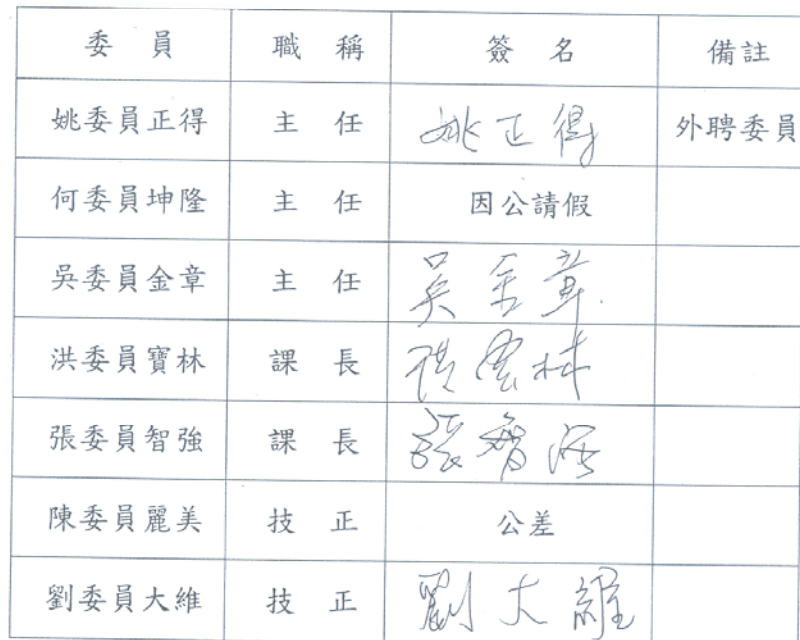 委員 職稱 簽名 備註
姚委員正得 主任 姚正得 外聘委員
何委員坤隆 主任 因公請假
吳委員金章 主任 吳金章
洪委員寶林 課長 洪寶林
張委員智強 課長 張智強
陳委員麗美 技正 公差
劉委員大維 技正 劉大維